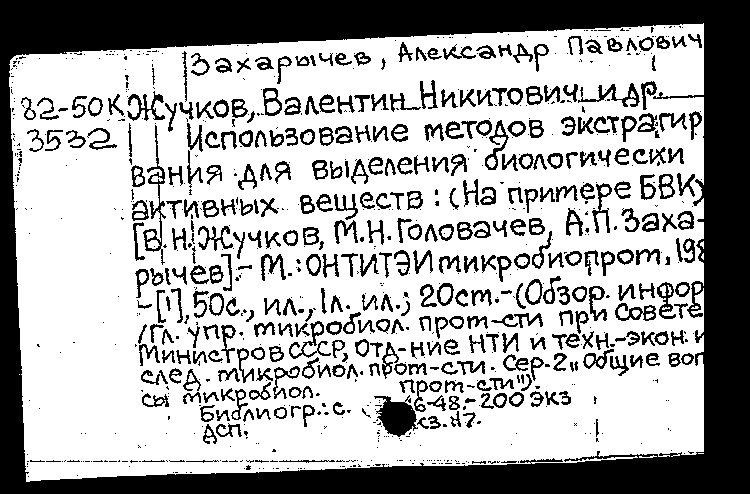 Захарычев, Александр Павлович
82-50К Жучков, Валентин Никитович и др.
3532 Использование методов экстрагир
вания для выделения биологически
активных веществ : (На примере БВК)
[В.Н. Жучков, М.Н. Головачев, А.П. Заха-
рычев].- М.: ОНТИТЭИмикробиопром, 198
-[1], 50с., ил., 1л. ил.; 20см.-(Обзор. инфор
/Гл. упр. микробиол. пром-сти при Совете
Министров СССР, Отд-ние НТИ и техн.-экон. и
след. микробиол. пром-сти. Сер. 2 „Общие воп
сы микробиол. пром-сти").
Библиогр.: с. 46-48.-200 экз
ДСП.